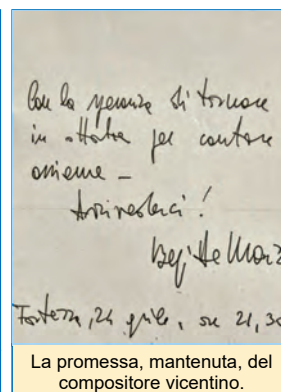 Con la speranza di tornare
in ottobre per cantare
assieme –
Arrivederci!
Bepi De Marz
Fortezza, 24 aprile, ore 21,30
La promessa, mantenuta, del
compositore vicentino.